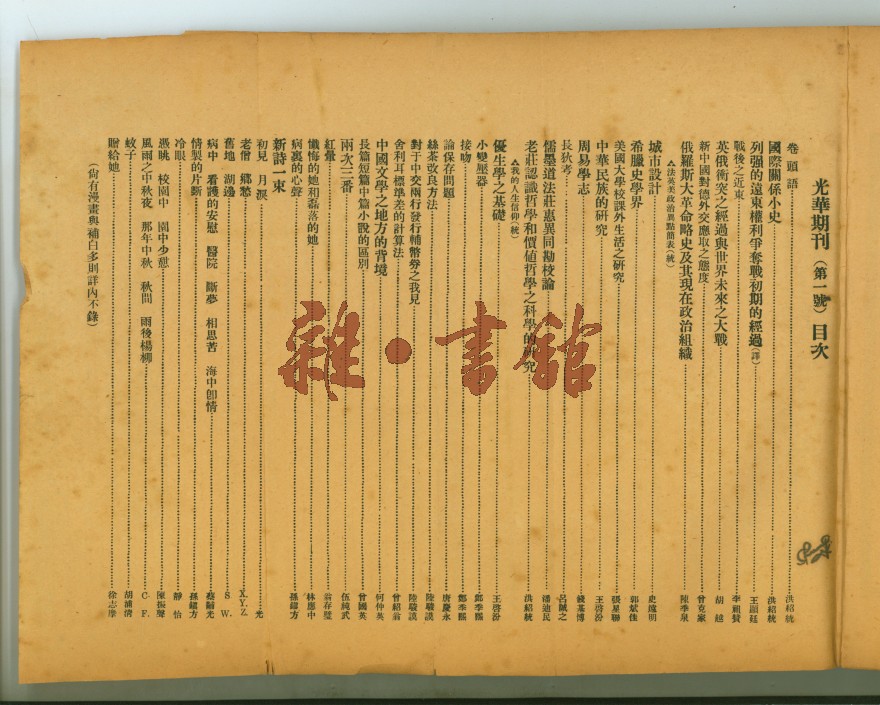 光華期刊（第一號）目次
卷頭語 洪紹統
國際關係小史 洪紹統
列强的遠東權利爭奪戰初期的經過（譯） 王顯廷
戰後之近東 李祖贊
英俄衝突之經過與世界未來之大戰 胡越
新中國對德外交應取之態度 曾克家
俄羅斯大革命略史及其現在政治組織 陳季泉
△法英美政治異點簡表（統）
城市設計 史逸明
希臘史學界 郭斌佳
美國大學校課外生活之研究 張星聯
中華民族的研究 王啓汾
周易學志 錢基博
長狄考 呂誠之
儒墨道法莊惠異同勘校論 潘迪民
老莊認識哲學和價值哲學之科學的研究 洪紹統
△我的人生信仰（統）
優生學之基礎 王啓汾
小變壓器 鄭季
接吻 鄭季
論保存問題 唐慶永
絲茶改良方法 陸駿謨
對于中交兩行發行輔幣劵之我見 陸駿謨
舍利耳標準差的計算法 曾紹翁
中國文學之地方的背境 何仲英
長篇短篇中篇小說的區別 曾國英
兩次三番 伍純武
紅暈 翁存璧
懺悔的她和磊落的她 林應中
病裏的心聲 孫鐳方
新詩一束
初見 月淚 光
老僧 鄉愁 X.Y.Z.
舊地 湖邊 S. W.
病中 看護的安慰 醫院 斷夢 相思苦 海中卽情 光
情製的片斷 孫鐳方
冷眼 靜怡
憑眺 校園中 園中少憩 陳振聲
風雨之中秋夜 那年中秋 秋間 雨後楊柳 C. F.
蚊子 胡浦清
贈給她 徐志摩
（尙有漫畫與補白多則詳內不錄）
雜·書館